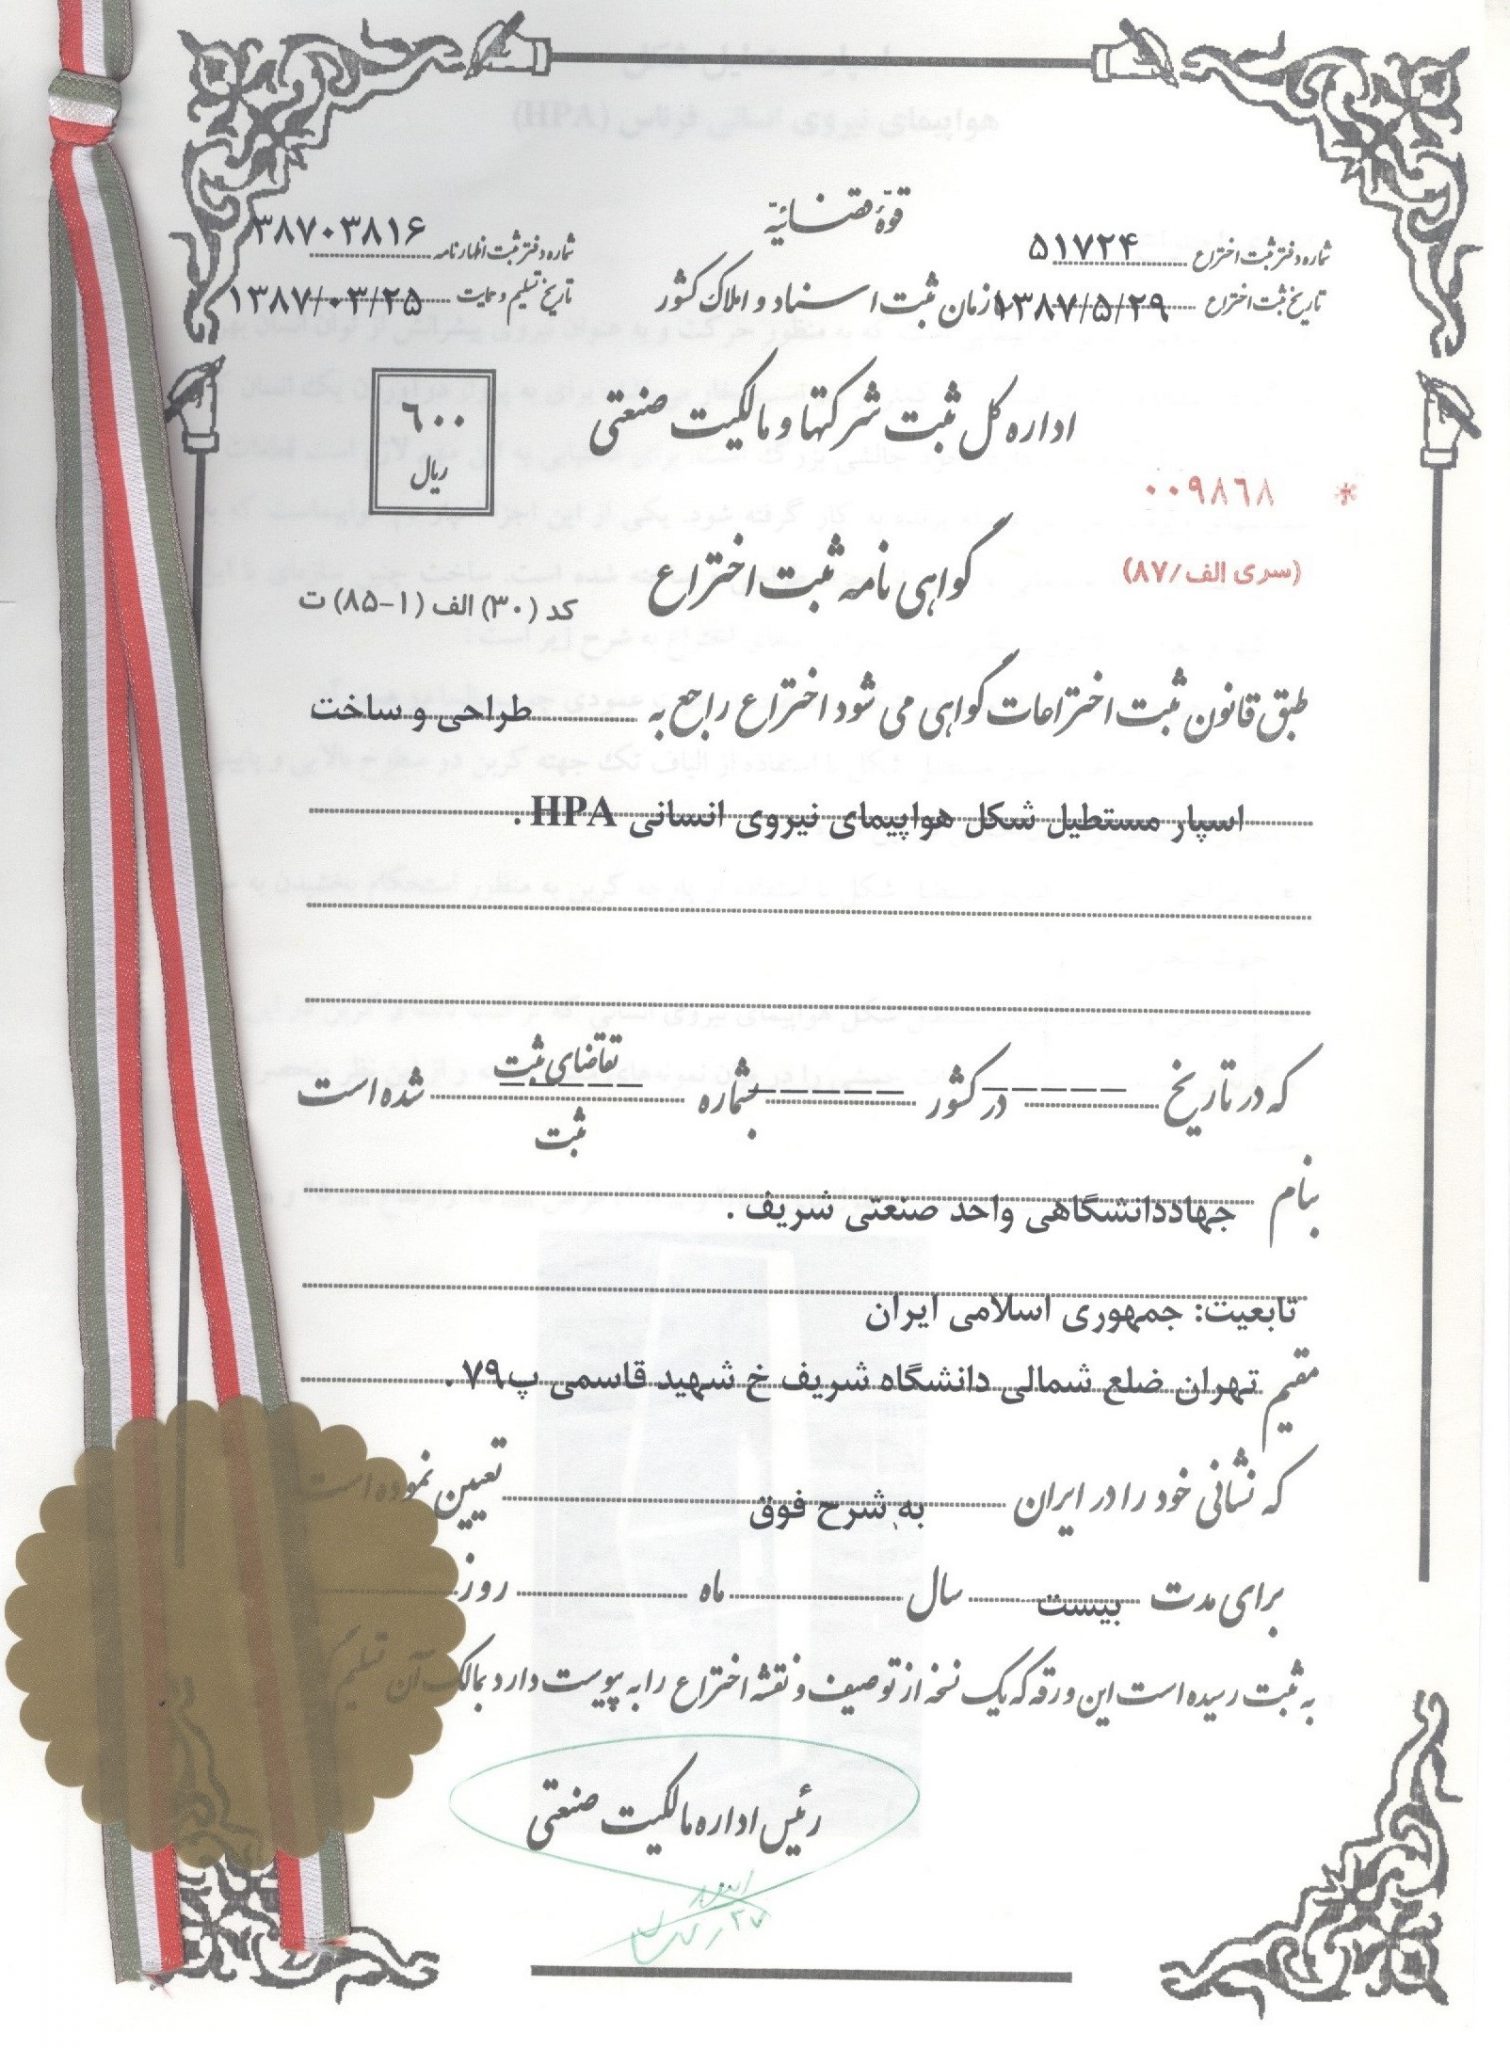 قوّهٔ قضائیّه
شماره دفتر ثبت اختراع ۵۱۷۲۴
شماره دفتر ثبت اظهارنامه ۳۸۷۰۳۸۱۶
سازمان ثبت اسناد و املاک کشور
تاریخ ثبت اختراع ۱۳۸۷/۵/۲۹
تاریخ تسلیم و حمایت ۱۳۸۷/۰۳/۲۵
اداره کل ثبت شرکتها و مالکیت صنعتی
۶۰۰
ریال
* ۰۰۹۸۶۸
(سری الف/۸۷)
گواهی نامه ثبت اختراع
کد (۳۰) الف (۱-۸۵) ت
طبق قانون ثبت اختراعات گواهی می شود اختراع راجع به طراحی و ساخت
اسپار مستطیل شکل هواپیمای نیروی انسانی HPA .
که در تاریخ ------ در کشور ------ بشماره ------ تقاضای ثبت شده است
ثبت
بنام جهاددانشگاهی واحد صنعتی شریف .
تابعیت: جمهوری اسلامی ایران
مقیم تهران ضلع شمالی دانشگاه شریف خ شهید قاسمی پ۷۹ .
که نشانی خود را در ایران به شرح فوق تعیین نموده است
برای مدت بیست سال ماه روز
به ثبت رسیده است این ورقه که یک نسخه از توصیف و نقشه اختراع را به پیوست دارد بمالک آن تسلیم
رئیس اداره مالکیت صنعتی